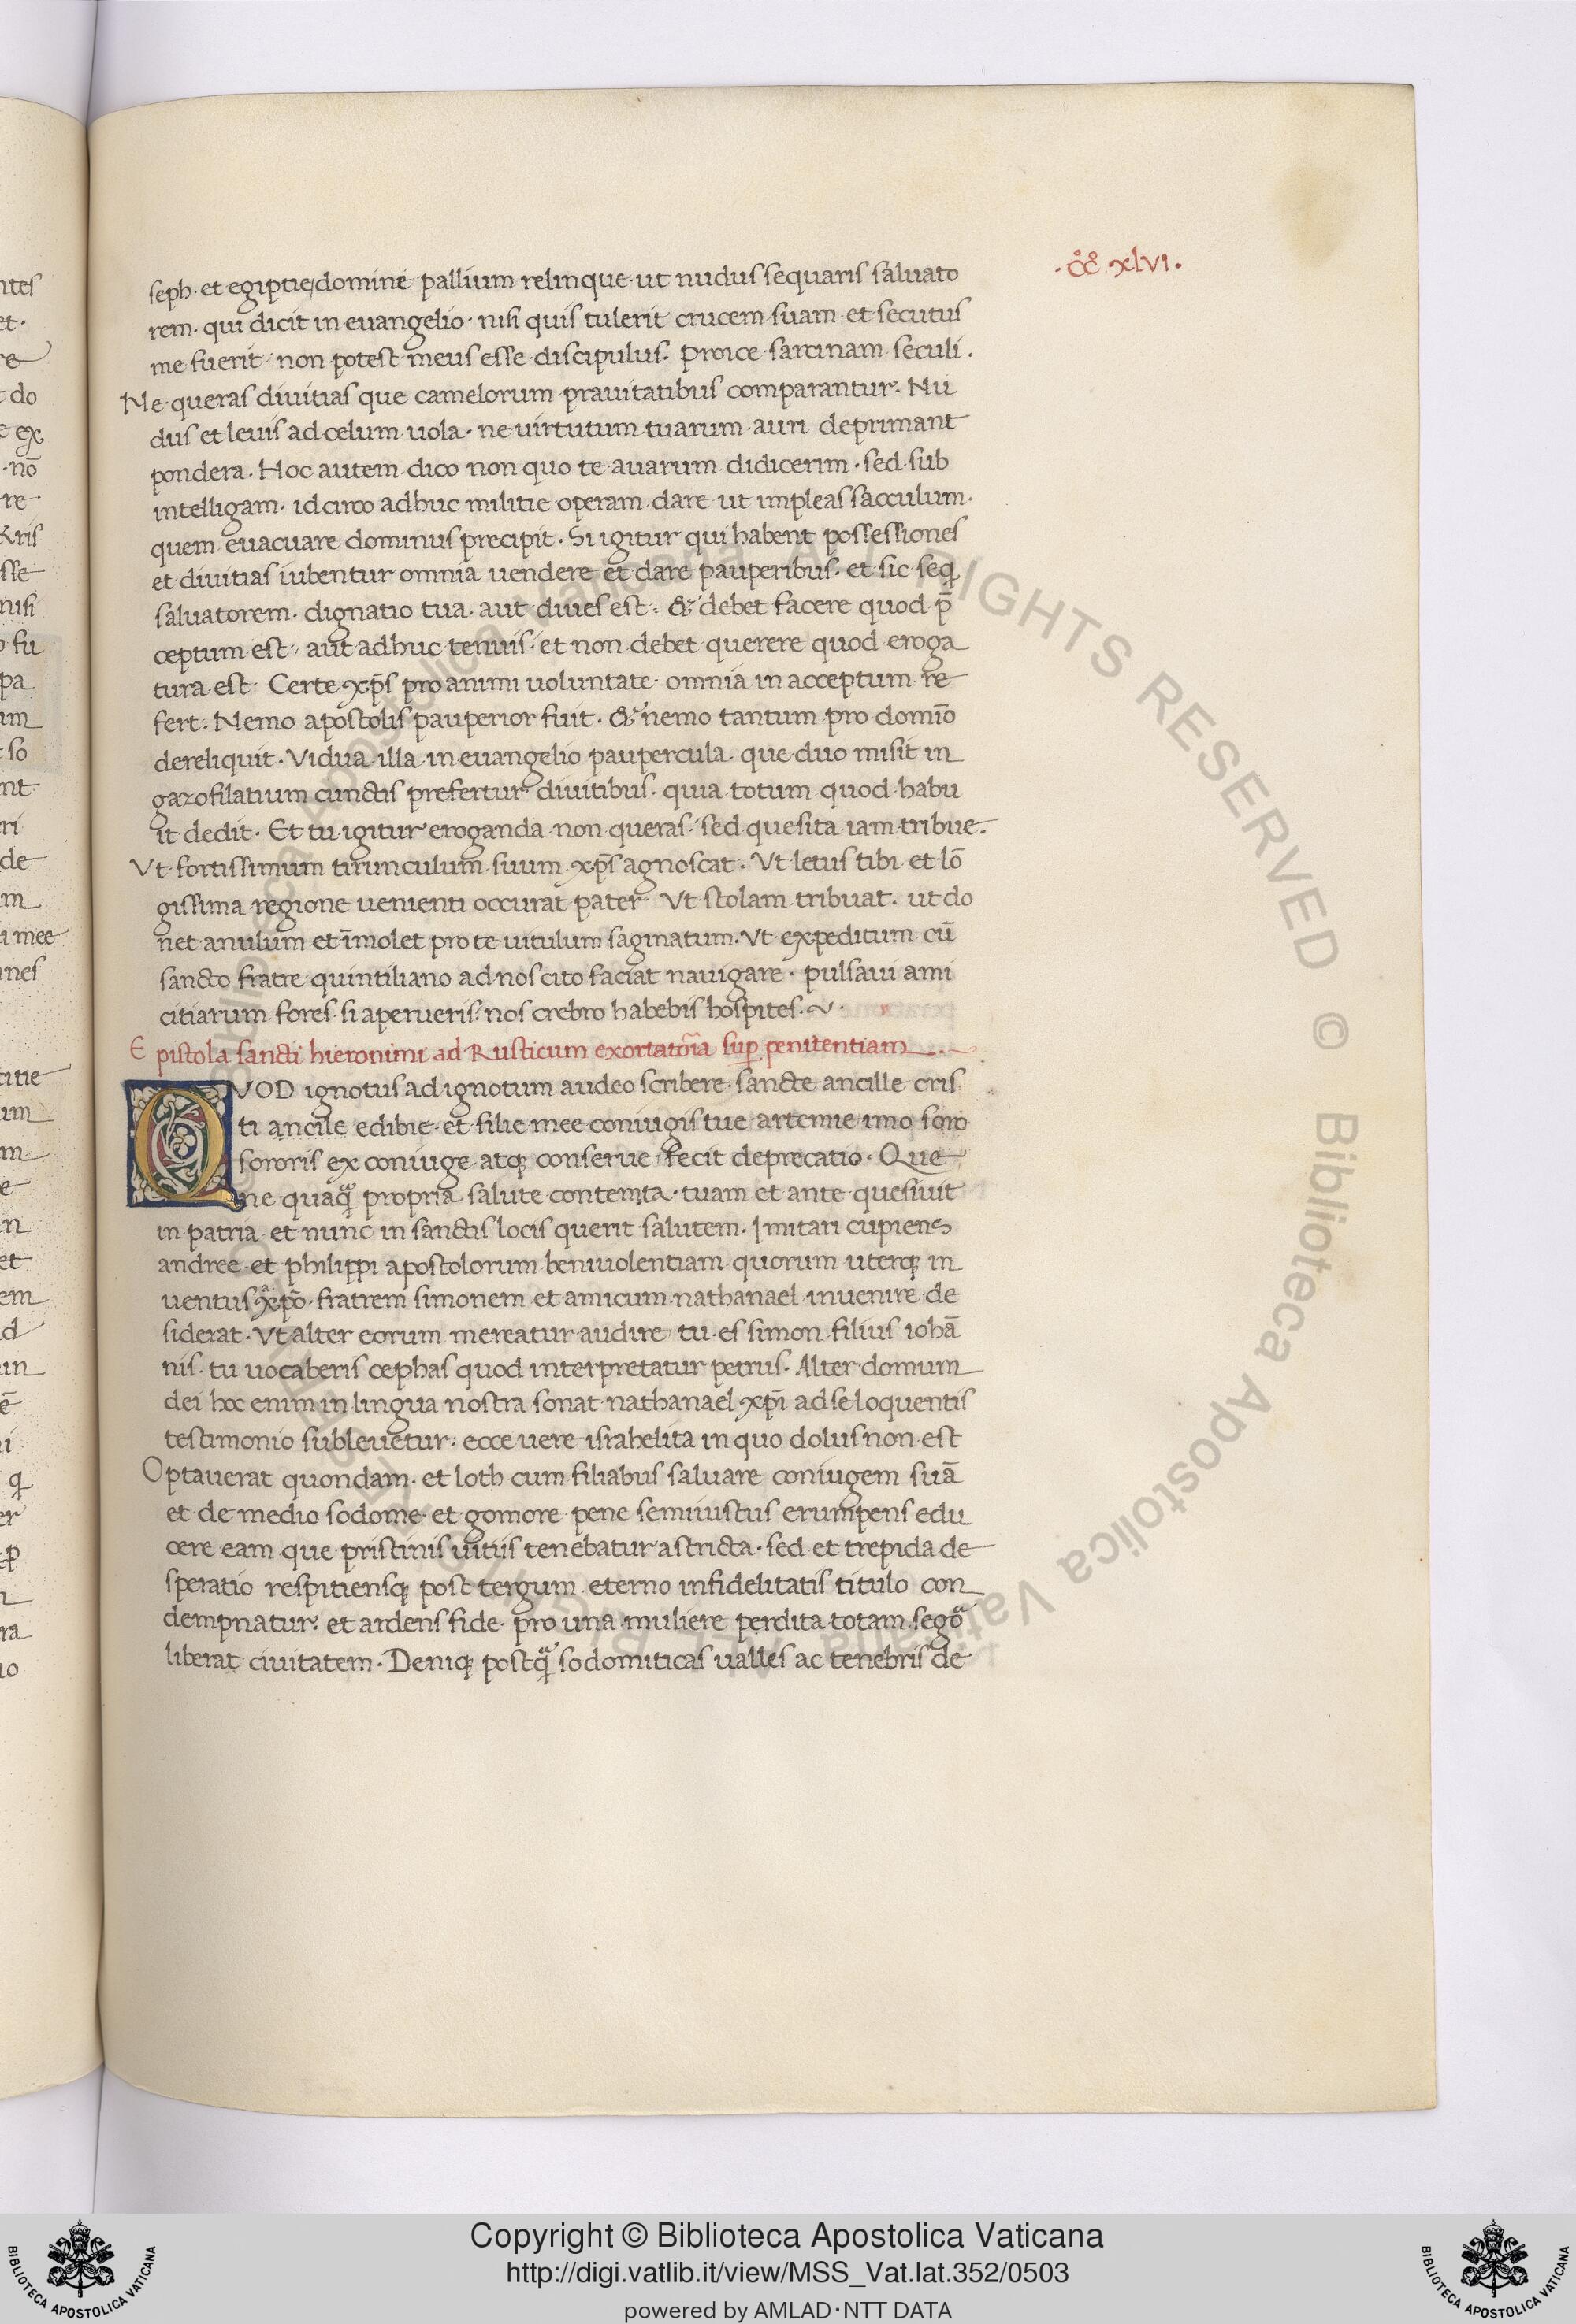 .cc̊c̊.xlvi.
seph· et egiptie domine pallium relinque· ut nudus sequaris saluato
rem· qui dicit in euangelio· nisi quis tulerit crucem suam et secutus
me fuerit· non potest meus esse discipulus. Proice sarcinam seculi.
Ne queras diuitias que camelorum prauitatibus comparantur. Nu
dus et leuis ad celum uola· ne uirtutum tuarum auri deprimant
pondera. Hoc autem dico non quo te auarum didicerim· sed sub
intelligam· idcirco adhuc militie operam dare ut impleas sacculum·
quem euacuare dominus precipit. Si igitur qui habent possessiones
et diuitias iubentur omnia uendere et dare pauperibus· et sic seqͥ
saluatorem· dignatio tua· aut diues est· & debet facere quod p̄
ceptum est· aut adhuc tenuis· et non debet querere quod eroga
tura est· Certe xp̄s pro animi uoluntate· omnia in acceptum re
fert. Nemo apostolis pauperior fuit· & nemo tantum pro domīo
dereliquit. Vidua illa in euangelio paupercula· que duo misit in
gazofilatium cunctis prefertur diuitibus· quia totum quod habu
it dedit. Et tu igitur eroganda non queras· sed quesita iam tribue.
Vt fortissimum tirunculum suum xp̄s agnoscat. Vt letus tibi et lō
gissima regione uenienti occurat pater· Vt stolam tribuat· ut do
net anulum et īmolet pro te uitulum saginatum. Vt expeditum cū
sancto fratre quintiliano ad nos cito faciat nauigare· pulsaui ami
citiarum fores· si aperueris· nos crebro habebis hospites.
Epistola sancti hieronimi ad Rusticum exortatoīa suꝑ penitentiam
QVOD ignotus ad ignotum audeo scribere· sancte ancille cris
ti ancile edibie· et filie mee coniugis tue artemie imo soro
sororis ex coniuge atqꝫ conserue fecit deprecatio· Que
ne quaq̄ propria salute contemta· tuam et ante quesiuit
in patria et nunc in sanctis locis querit salutem. Imitari cupiens
andree et philippi apostolorum beniuolentiam quorum uterqꝫ in
uentus xp̄o· fratrem simonem et amicum nathanael inuenire de
siderat. Vt alter eorum mereatur audire tu es simon filius iohā
nis· tu uocaberis cephas quod interpretatur petrus. Alter domum
dei hoc enim in lingua nostra sonat nathanael xp̄i ad se loquentis
testimonio subleuetur· ecce uere israhelita in quo dolus non est
Optauerat quondam· et loth cum filiabus saluare coniugem suā
et de medio sodome et gomore pene semiustus erumpens edu
cere eam que pristinis uitiis tenebatur astricta· sed et trepida de
speratio respitiensqꝫ post tergum eterno infidelitatis titulo con
dempnatur· et ardens fide· pro una muliere perdita totam segoͣ
liberat ciuitatem. Deniqꝫ postq̄ sodomiticas ualles ac tenebris de
Copyright © Biblioteca Apostolica Vaticana
http://digi.vatlib.it/view/MSS_Vat.lat.352/0503
powered by AMLAD·NTT DATA